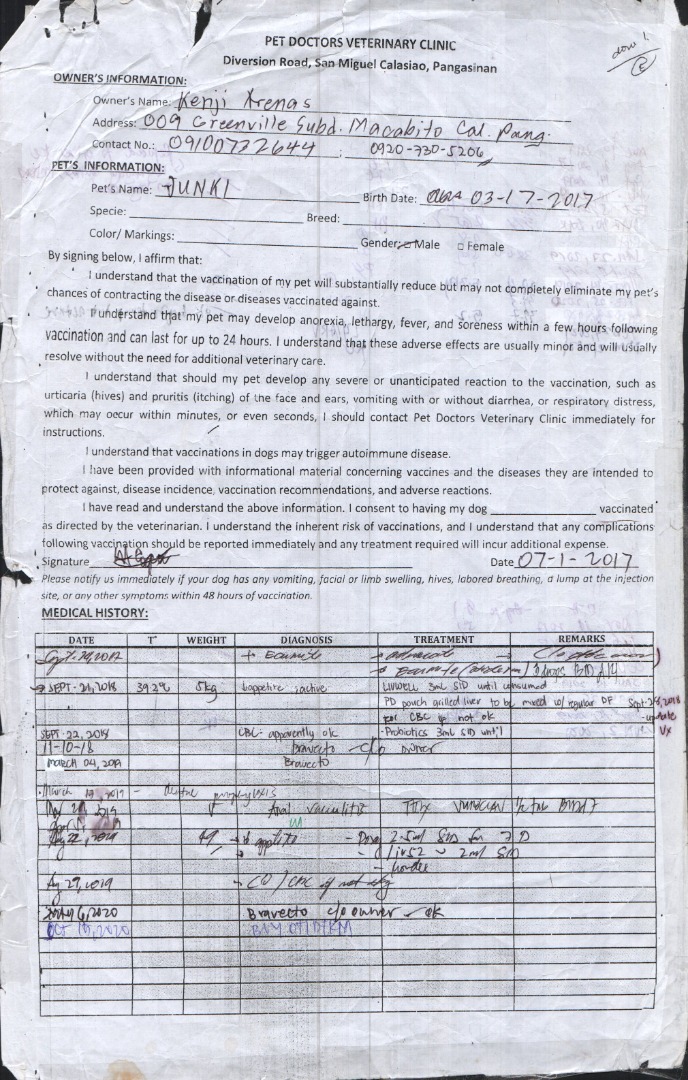 PET DOCTORS VETERINARY CLINIC
Diversion Road, San Miguel Calasiao, Pangasinan
OWNER'S INFORMATION:
Owner's Name: Kenji Arenas
Address: 009 Greenville Subd. Macabito Cal. Pang.
Contact No.: 09100732644 ; 0920-730-5206
PET'S INFORMATION:
Pet's Name: JUNKI Birth Date: 03-17-2017
Specie: Breed:
Color/ Markings: Gender: Male Female
By signing below, I affirm that:
I understand that the vaccination of my pet will substantially reduce but may not completely eliminate my pet's
chances of contracting the disease or diseases vaccinated against.
I understand that my pet may develop anorexia, lethargy, fever, and soreness within a few hours following
vaccination and can last for up to 24 hours. I understand that these adverse effects are usually minor and will usually
resolve without the need for additional veterinary care.
I understand that should my pet develop any severe or unanticipated reaction to the vaccination, such as
urticaria (hives) and pruritis (itching) of the face and ears, vomiting with or without diarrhea, or respiratory distress,
which may occur within minutes, or even seconds, I should contact Pet Doctors Veterinary Clinic immediately for
instructions.
I understand that vaccinations in dogs may trigger autoimmune disease.
I have been provided with informational material concerning vaccines and the diseases they are intended to
protect against, disease incidence, vaccination recommendations, and adverse reactions.
I have read and understand the above information. I consent to having my dog vaccinated
as directed by the veterinarian. I understand the inherent risk of vaccinations, and I understand that any complications
following vaccination should be reported immediately and any treatment required will incur additional expense.
Signature Date 07-1-2017
Please notify us immediately if your dog has any vomiting, facial or limb swelling, hives, labored breathing, a lump at the injection
site, or any other symptoms within 48 hours of vaccination.
MEDICAL HISTORY:
DATE T° WEIGHT DIAGNOSIS TREATMENT REMARKS
SEPT. 21, 2018 39.2°C 5kg active 3mL SID until consumed
PD pouch grilled liver to be mixed w/ regular DF Sept-28, 2018
for CBC if not ok - update
SEPT. 22, 2018 CBC- apparently ok -Probiotics 3mL SID until Vx
11-10-18 Bravecto c/o owner
MARCH 04, 2019 Bravecto
March 19, 2019 - dental prophylaxis
2.5ml SID for 7D
liv52 2ml SID
Ag 27, 2019 CBC if not okay
May 6, 2020 Bravecto c/o owner - ok
OCT 10, 2020 BUY OTIDERM